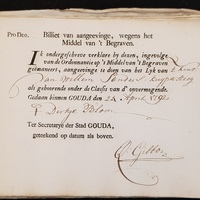 Pro Deo. Billiet van aangeevinge, wegens het
Middel van 't Begraven.
Ik ondergeschreve verklare by deezen, ingevolge
van de Ordonnantie op 't Middel van 't Begraven
geëmaneert, aangeevinge te doen van het Lyk van
van Willem
als gehoorende onder de Classis van d' onvermogende.
Gedaan binnen GOUDA de 24 April
Dirkje Blom
Ter Secretarye der Stad GOUDA,
geteekend op datum als boven.